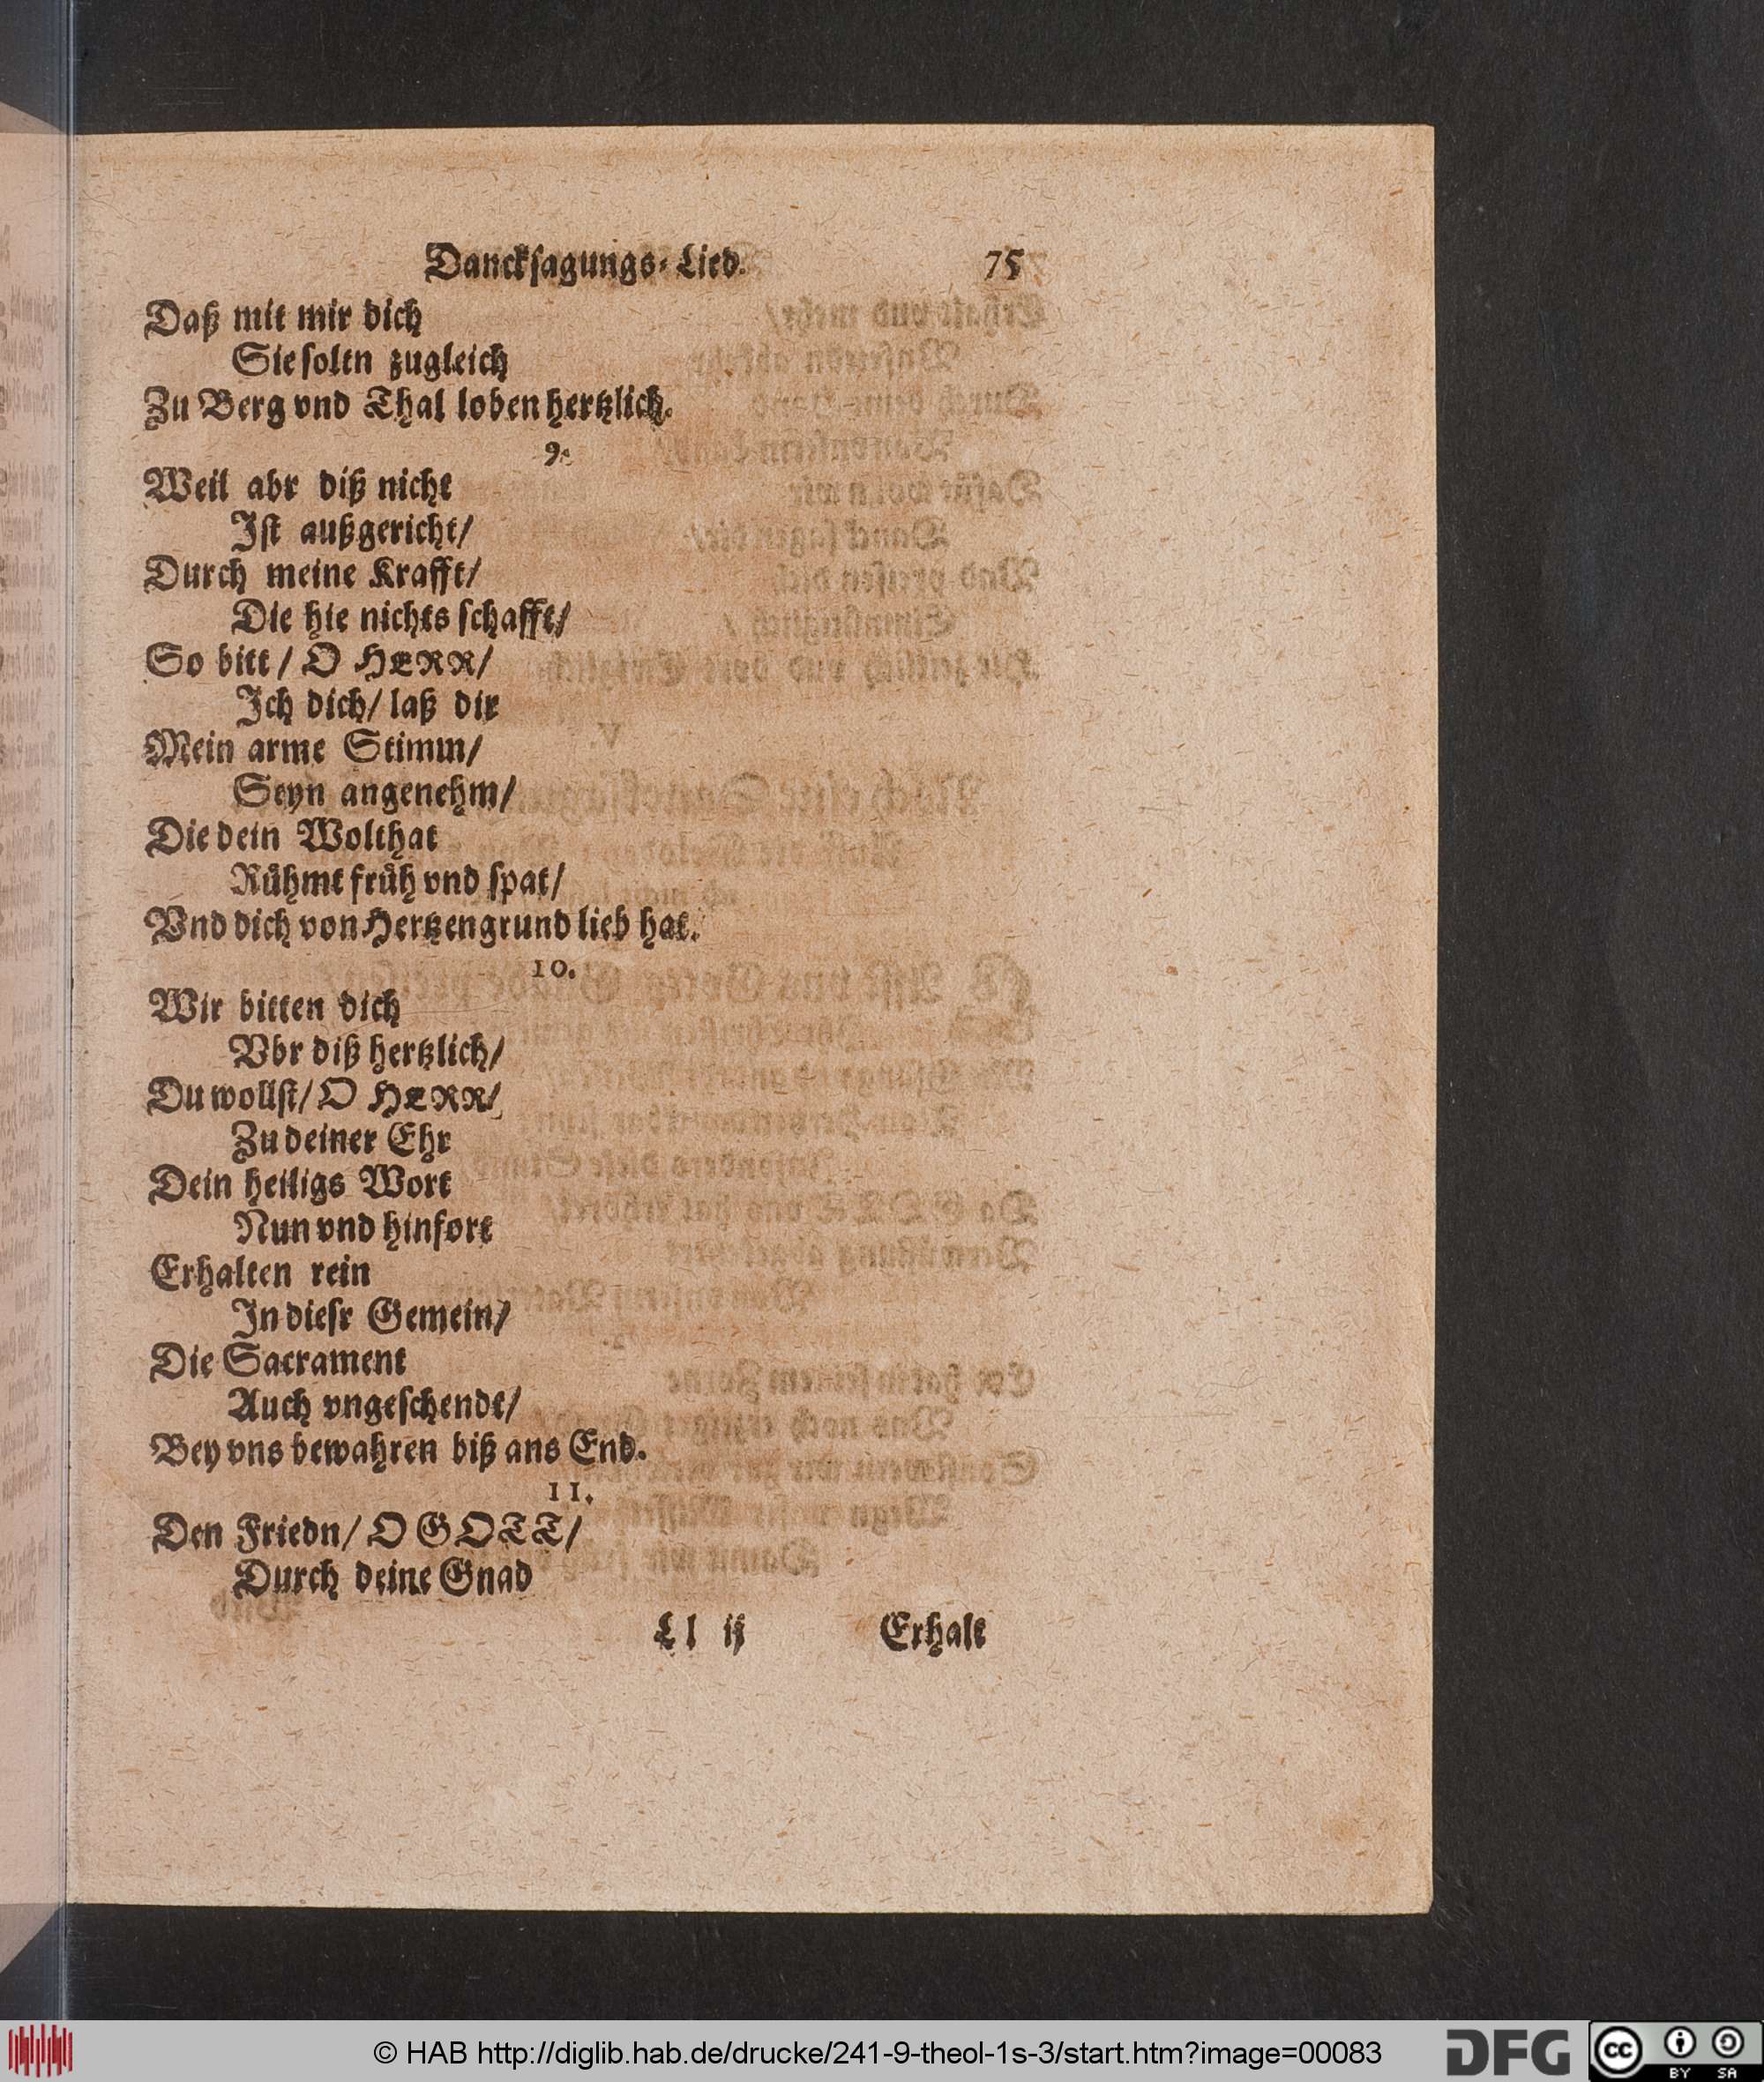 Danckſagungs-Lied. 75
Daß mit mir dich
Sie ſoltn zugleich
Zu Berg vnd Thal loben hertzlich.
9.
Weil abr diß nicht
Iſt außgericht/
Durch meine Krafft/
Die hie nichts ſchafft/
So bitt/ O HERR/
Ich dich/ laß dir
Mein arme Stimm/
Seyn angenehm/
Die dein Wolthat
Rühmt früh vnd ſpat/
Vnd dich von Hertzengrund lieb hat.
10.
Wir bitten dich
Vbr diß hertzlich/
Du wollſt/ O HERR/
Zu deiner Ehr
Dein heiligs Wort
Nun vnd hinfort
Erhalten rein
In dieſr Gemein/
Die Sacrament
Auch vngeſchendt/
Bey vns bewahren biß ans End.
11.
Den Friedn/ O GOTT/
Durch deine Gnad
Ll ij Erhalt
© HAB http://diglib.hab.de/drucke/241-9-theol-1s-3/start.htm?image=00083
DFG
cc BY SA